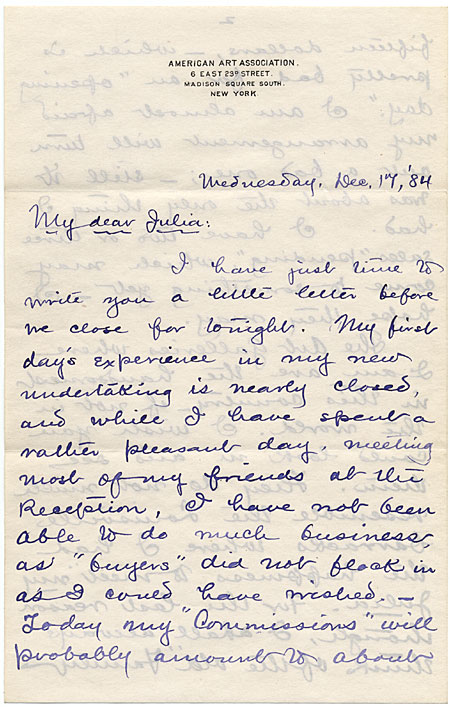 AMERICAN ART ASSOCIATION.
6 EAST 23D STREET.
MADISON SQUARE SOUTH.
NEW YORK.
Wednesday, Dec, 17,'84
My dear Julia:
I have just time to
write you a little letter before
we close for tonight. My first
day's experience in my new
undertaking is nearly closed,
and while I have spent a
rather pleasant day, meeting
most of my friends at the
Reception, I have not been
able to do much business,
as "buyers" did not flock in
as I could have wished. —
Today my "Commissions" will
probably amount to about